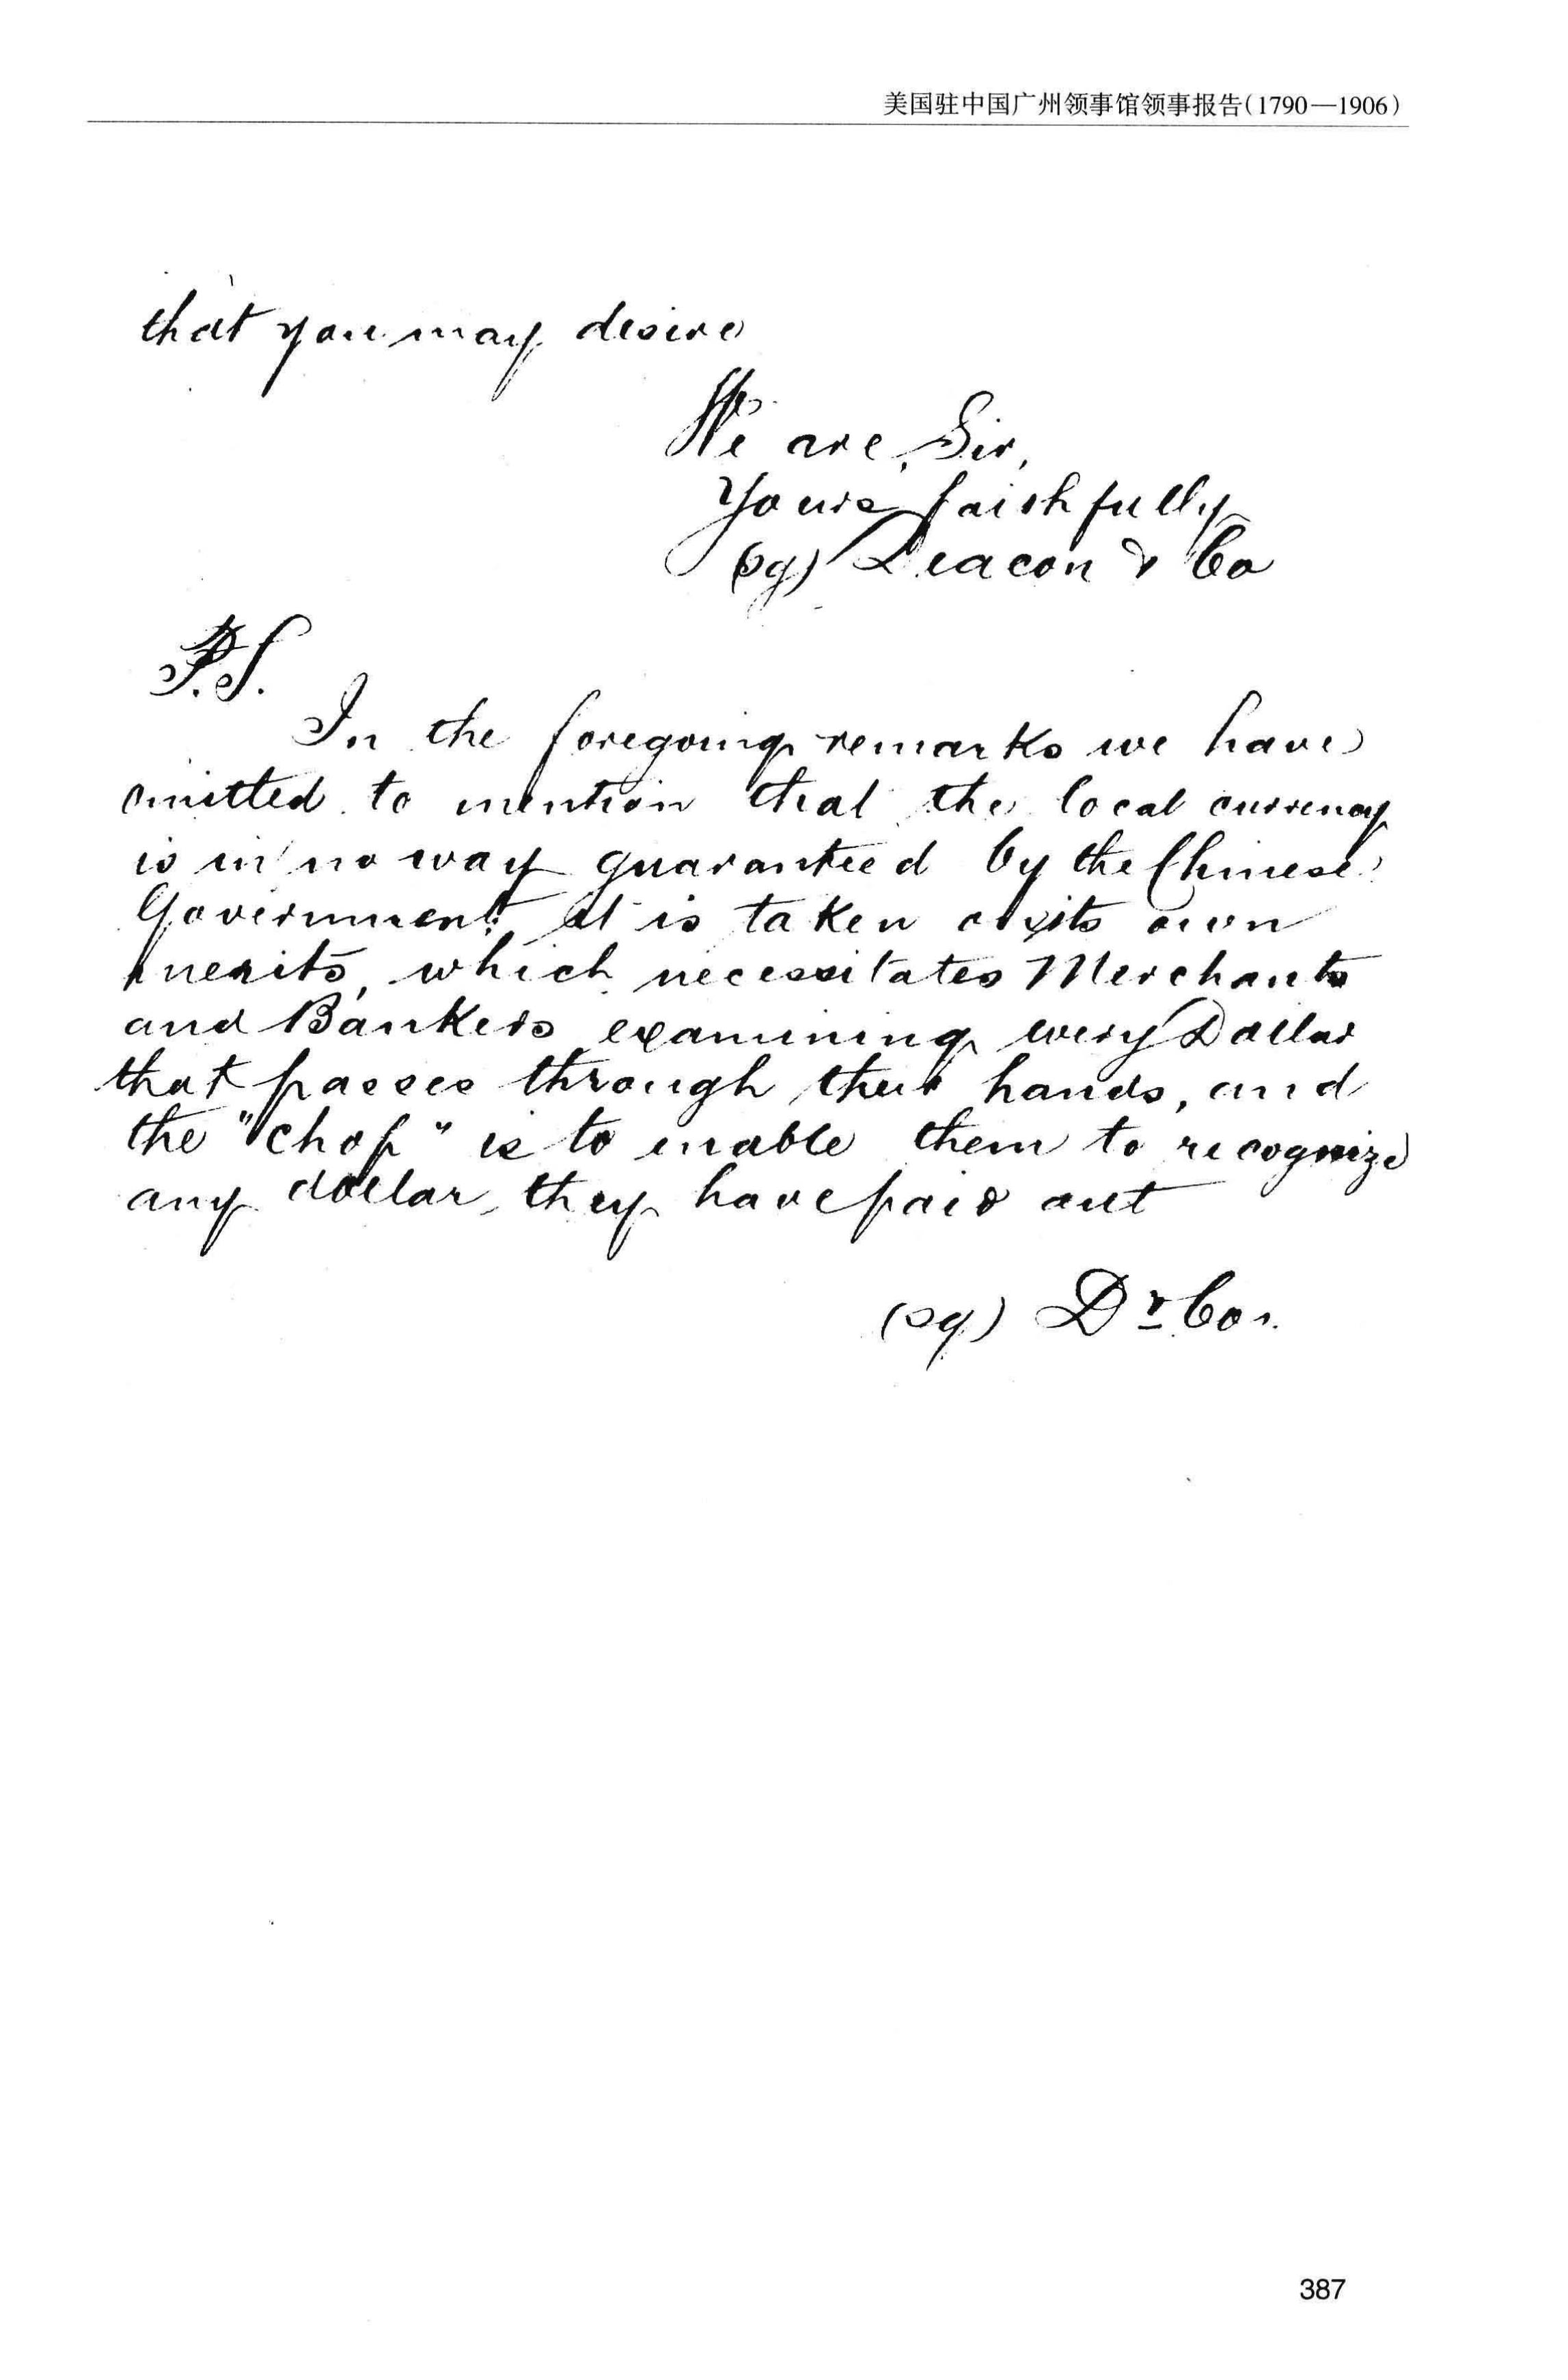 美国驻中国广州领事馆领事报告(1790—1906)
that you may desire
We are, Sir,
Yours faithfully
(sg) Deacon & Co
P.S.
In the foregoing remarks we have
omitted to mention that the local currency
is in no way guaranteed by the Chinese
Government, it is taken at its own
merits, which necessitates Merchants
and Bankers examining every Dollar
that passes through their hands, and
the "chop" is to enable them to recognize
any dollar, they have paid out
(sg) D & Co.
387